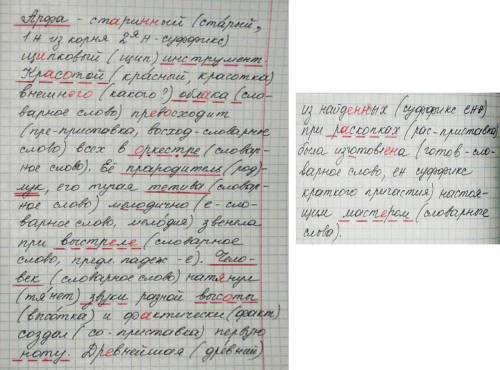 Арфа - старинный (ста́рый,
1 н из корня 2ая н - суффикс)
щипковый (щип) инструмент.
Красотой (красной, красотка)
внешнего (какого?) облака (сло-
варное слово) превосходит
(пре-приставка, восход-словарное
слово) всех в оркестре (словар-
ное слово). Её прародитель (род)
лук, его тугая тетива (словар-
ное слово) мелодично (е-сло-
варное слово, мелодия) звенела
при выстреле (словарное
слово, предл. падеж -е). Чело-
век (словарное слово) натянул
(тя́нет) звуки разной высоты
(высотка) и фактически (факт)
создал (со-приставка) первую
ноту. Древнейшая (древний)
из найденных (суффикс енн)
при раскопках (рас-приставка)
была изготовлена (готов-сло-
варное слово, ен суффикс
краткого причастия) настоя-
щим мастером (словарные
слово).